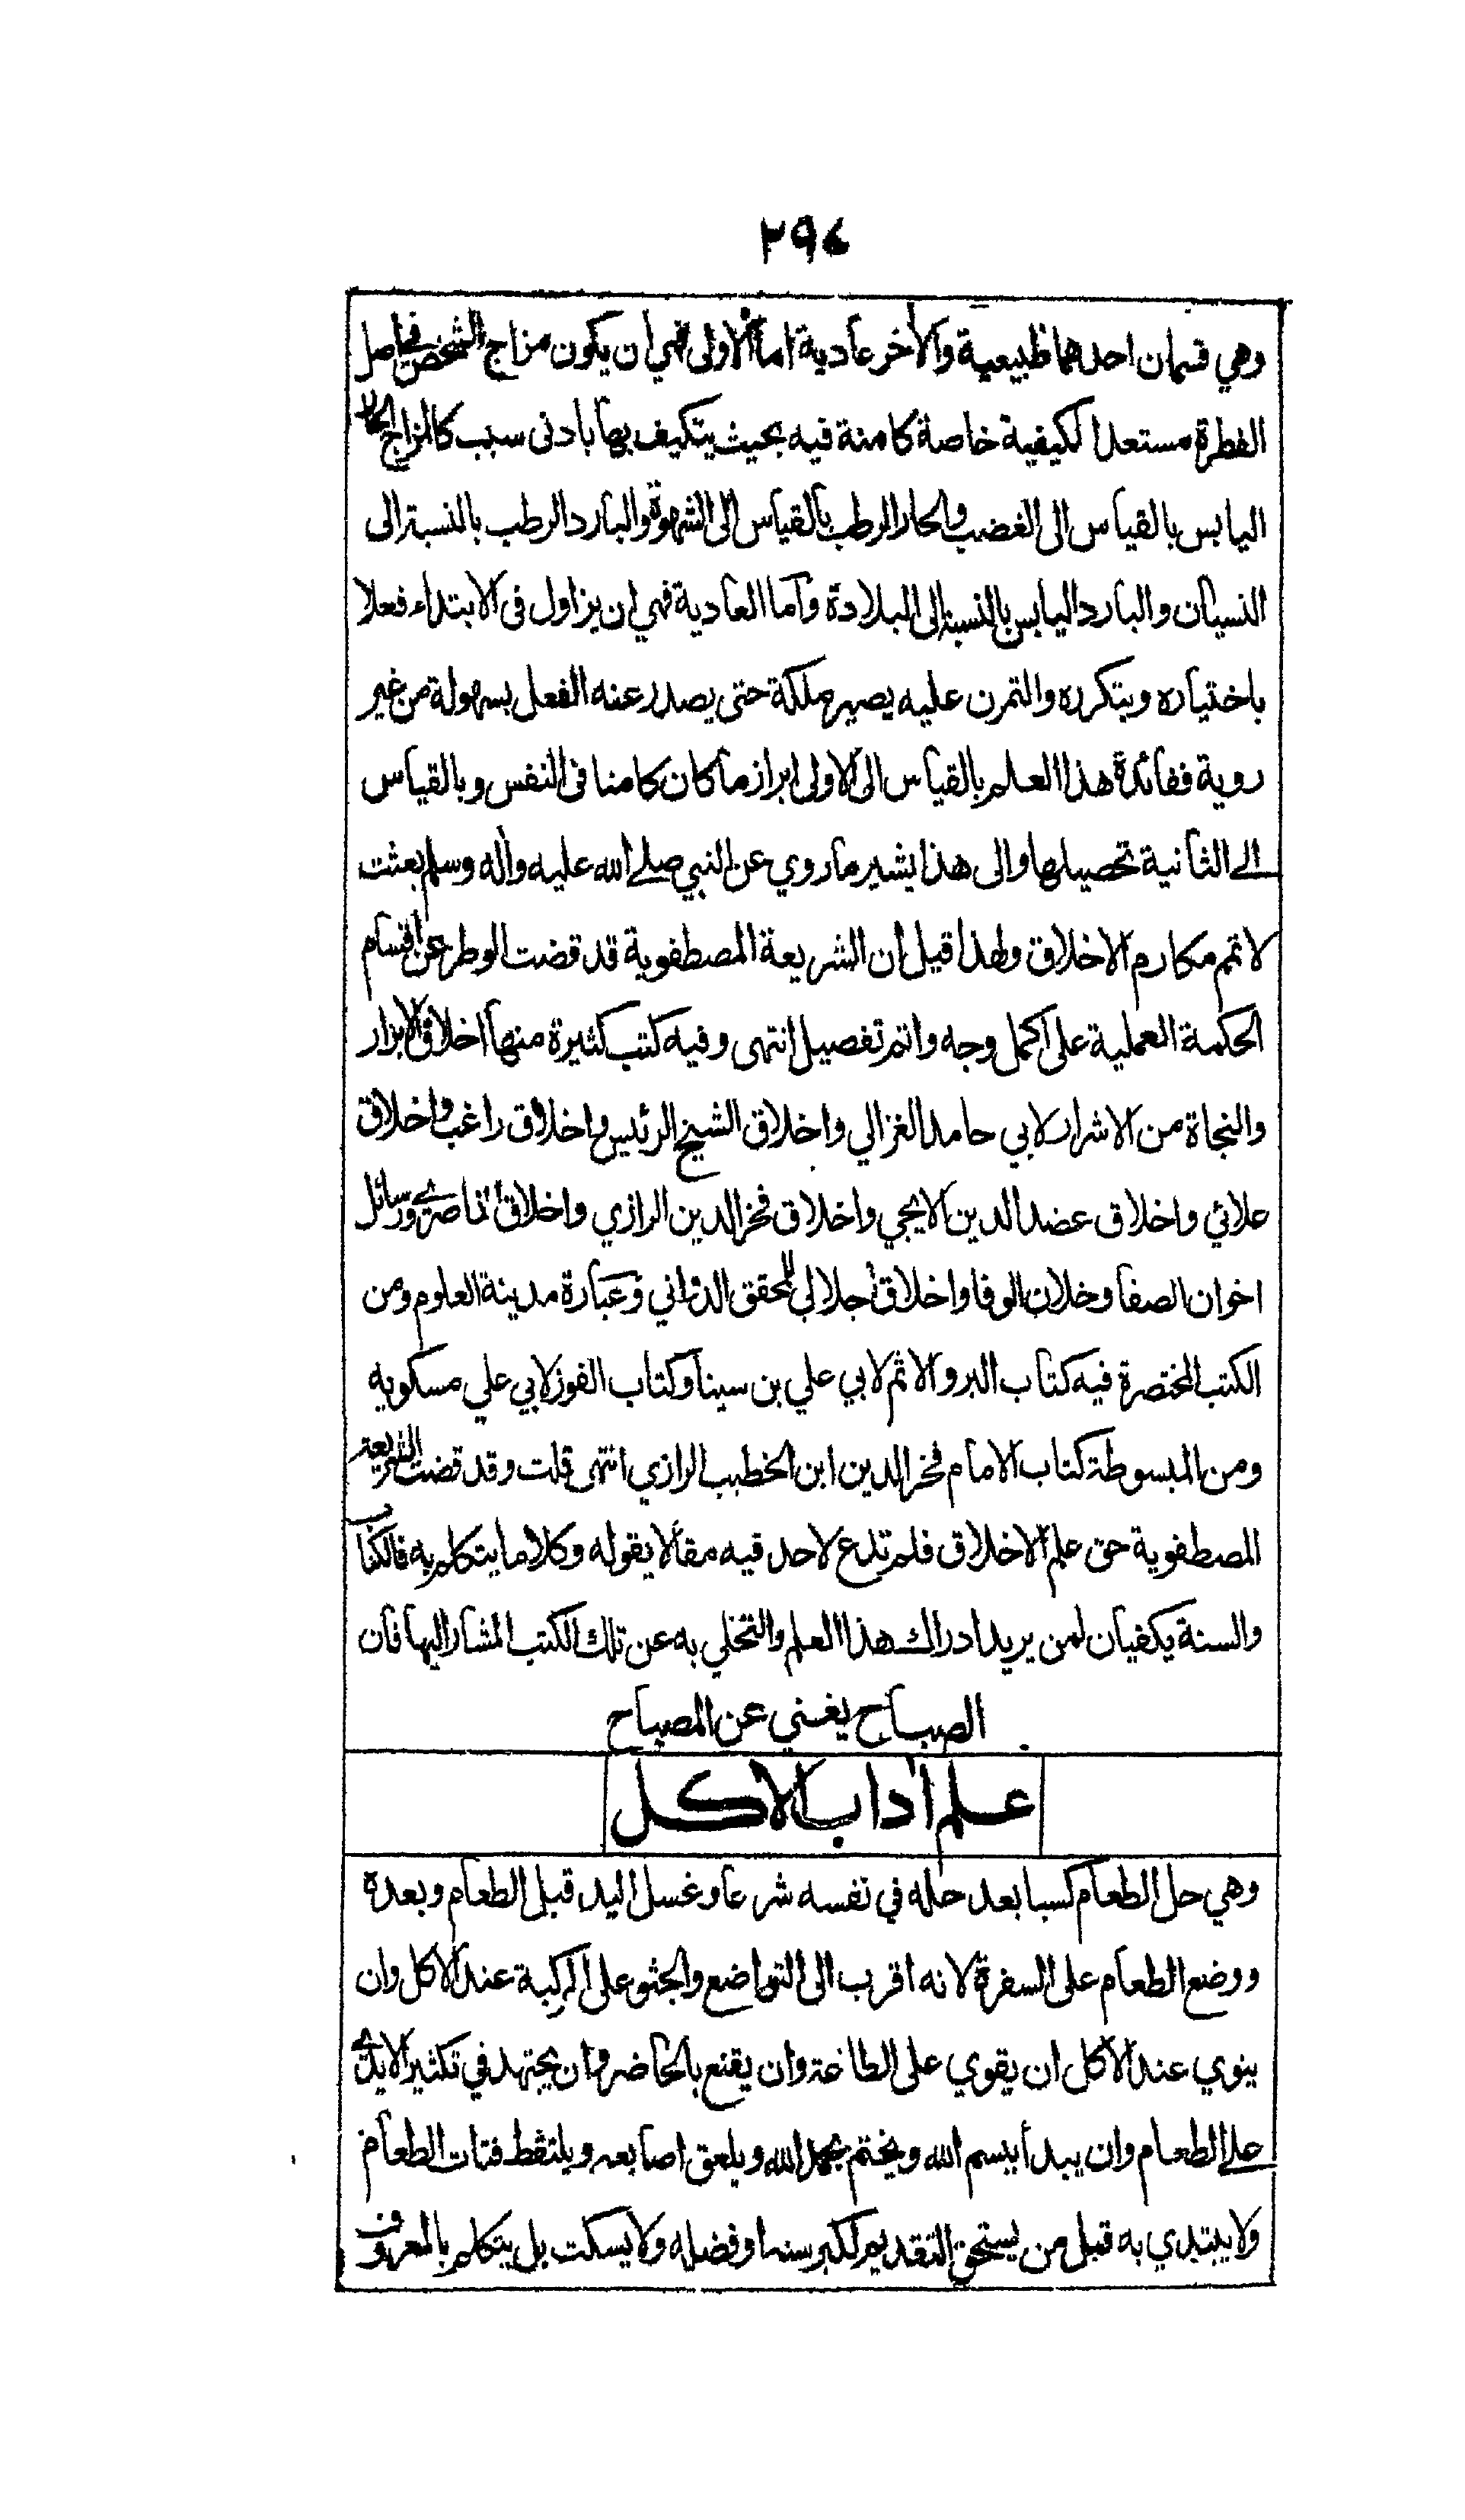 ۲۹۴
وهي قسمان احدهما طبيعية والاخر عادية اما الاولى فهي ان يكون مزاج الشخص في اصل
الفطرة مستعدا لكيفية خاصة كامنة فيه بحيث يتكيف بها بادنى سبب كالمزاج الحار
اليابس بالقياس الى الغضب والحار الرطب بالقياس الى الشهوة والبارد الرطب بالنسبة الى
النسيان والبارد اليابس بالنسبة الى البلادة واما العادية فهي ان يزاول فى الابتداء فعلا
باختياره وبتكرره والتمرن عليه يصير ملكة حتى يصدر عنه الفعل بسهولة من غير
روية ففائدة هذا العلم بالقياس الى الاولى ابراز ما كان كامنا فى النفس وبالقياس
الى الثانية تحصيلها والى هذا يشير ما روي عن النبي صلى الله عليه واله وسلم بعثت
لاتمم مكارم الاخلاق ولهذا قيل ان الشريعة المصطفوية قد قضت الوطر عن اقسام
الحكمة العملية على اكمل وجه واتم تفصيل انتهى وفيه كتب كثيرة منها اخلاق الابرار
والنجاة من الاشرار لابي حامد الغزالي واخلاق الشيخ الرئيس واخلاق راغب واخلاق
علائي واخلاق عضد الدين الايجي واخلاق فخر الدين الرازي واخلاق الناصري ورسائل
اخوان الصفا وخلان الوفا واخلاق جلالي للمحقق الدواني وعبارة مدينة العلوم ومن
الكتب المختصرة فيه كتاب البر والاثم لابي علي بن سينا وكتاب الفوز لابي علي مسكويه
ومن المبسوطة كتاب الامام فخر الدين ابن الخطيب الرازي انتهى قلت وقد قضت الشريعة
المصطفوية حق علم الاخلاق فلم تدع لاحد فيه مقالا يقوله وكلاما يتكلم به فالكتاب
والسنة يكفيان لمن يريد ادراك هذا العلم والتخلي به عن تلك الكتب المشار اليها فان
الصباح يغني عن المصباح
علم اداب الاكل
وهي حل الطعام كسبا بعد حله في نفسه شرعا وغسل اليد قبل الطعام وبعده
ووضع الطعام على السفرة لانه اقرب الى التواضع والجثو على الركبة عند الاكل وان
ينوي عند الاكل ان يقوي على الطاعة وان يقنع بالحاضر وان يجتهد في تكثير الايدي
على الطعام وان يبدأ ببسم الله ويختم بحمد الله ويلعق اصابعه ويلتقط فتات الطعام
ولا يبتدي به قبل من يستحق التقديم لكبر سنه او فضله ولا يسكت بل يتكلم بالمعروف